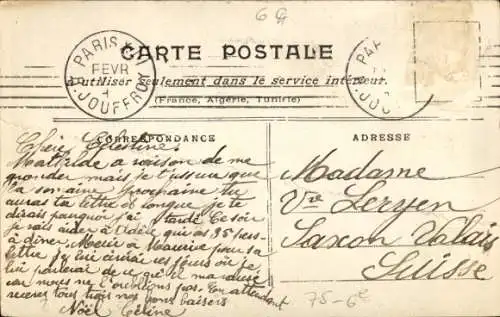 6 G
PARIS
FEVR
R. JOUFFROY
PAR
R. JOU
CARTE POSTALE
utiliser seulement dans le service intérieur.
(France, Algérie, Tunisie)
CORRESPONDANCE
ADRESSE
Chère Célestine
Mathilde a raison de me
gronder mais je t'assure que
la semaine prochaine tu
auras ta lettre et longue je te
dirais pourquoi j'ai tardé Ce soir
je vais aider à Adèle qui as 25 pers
à diner, Merci à Maurice pour sa
lettre je lui écrirai ces jours où je
lui parlerai de ce qu'il
car nous ne l'oublions pas. En attendant
recevez tous trois nos bons baisers
Noël Céline
Madame
Vve Leryen
Saxon Valais
Suisse
75-6e